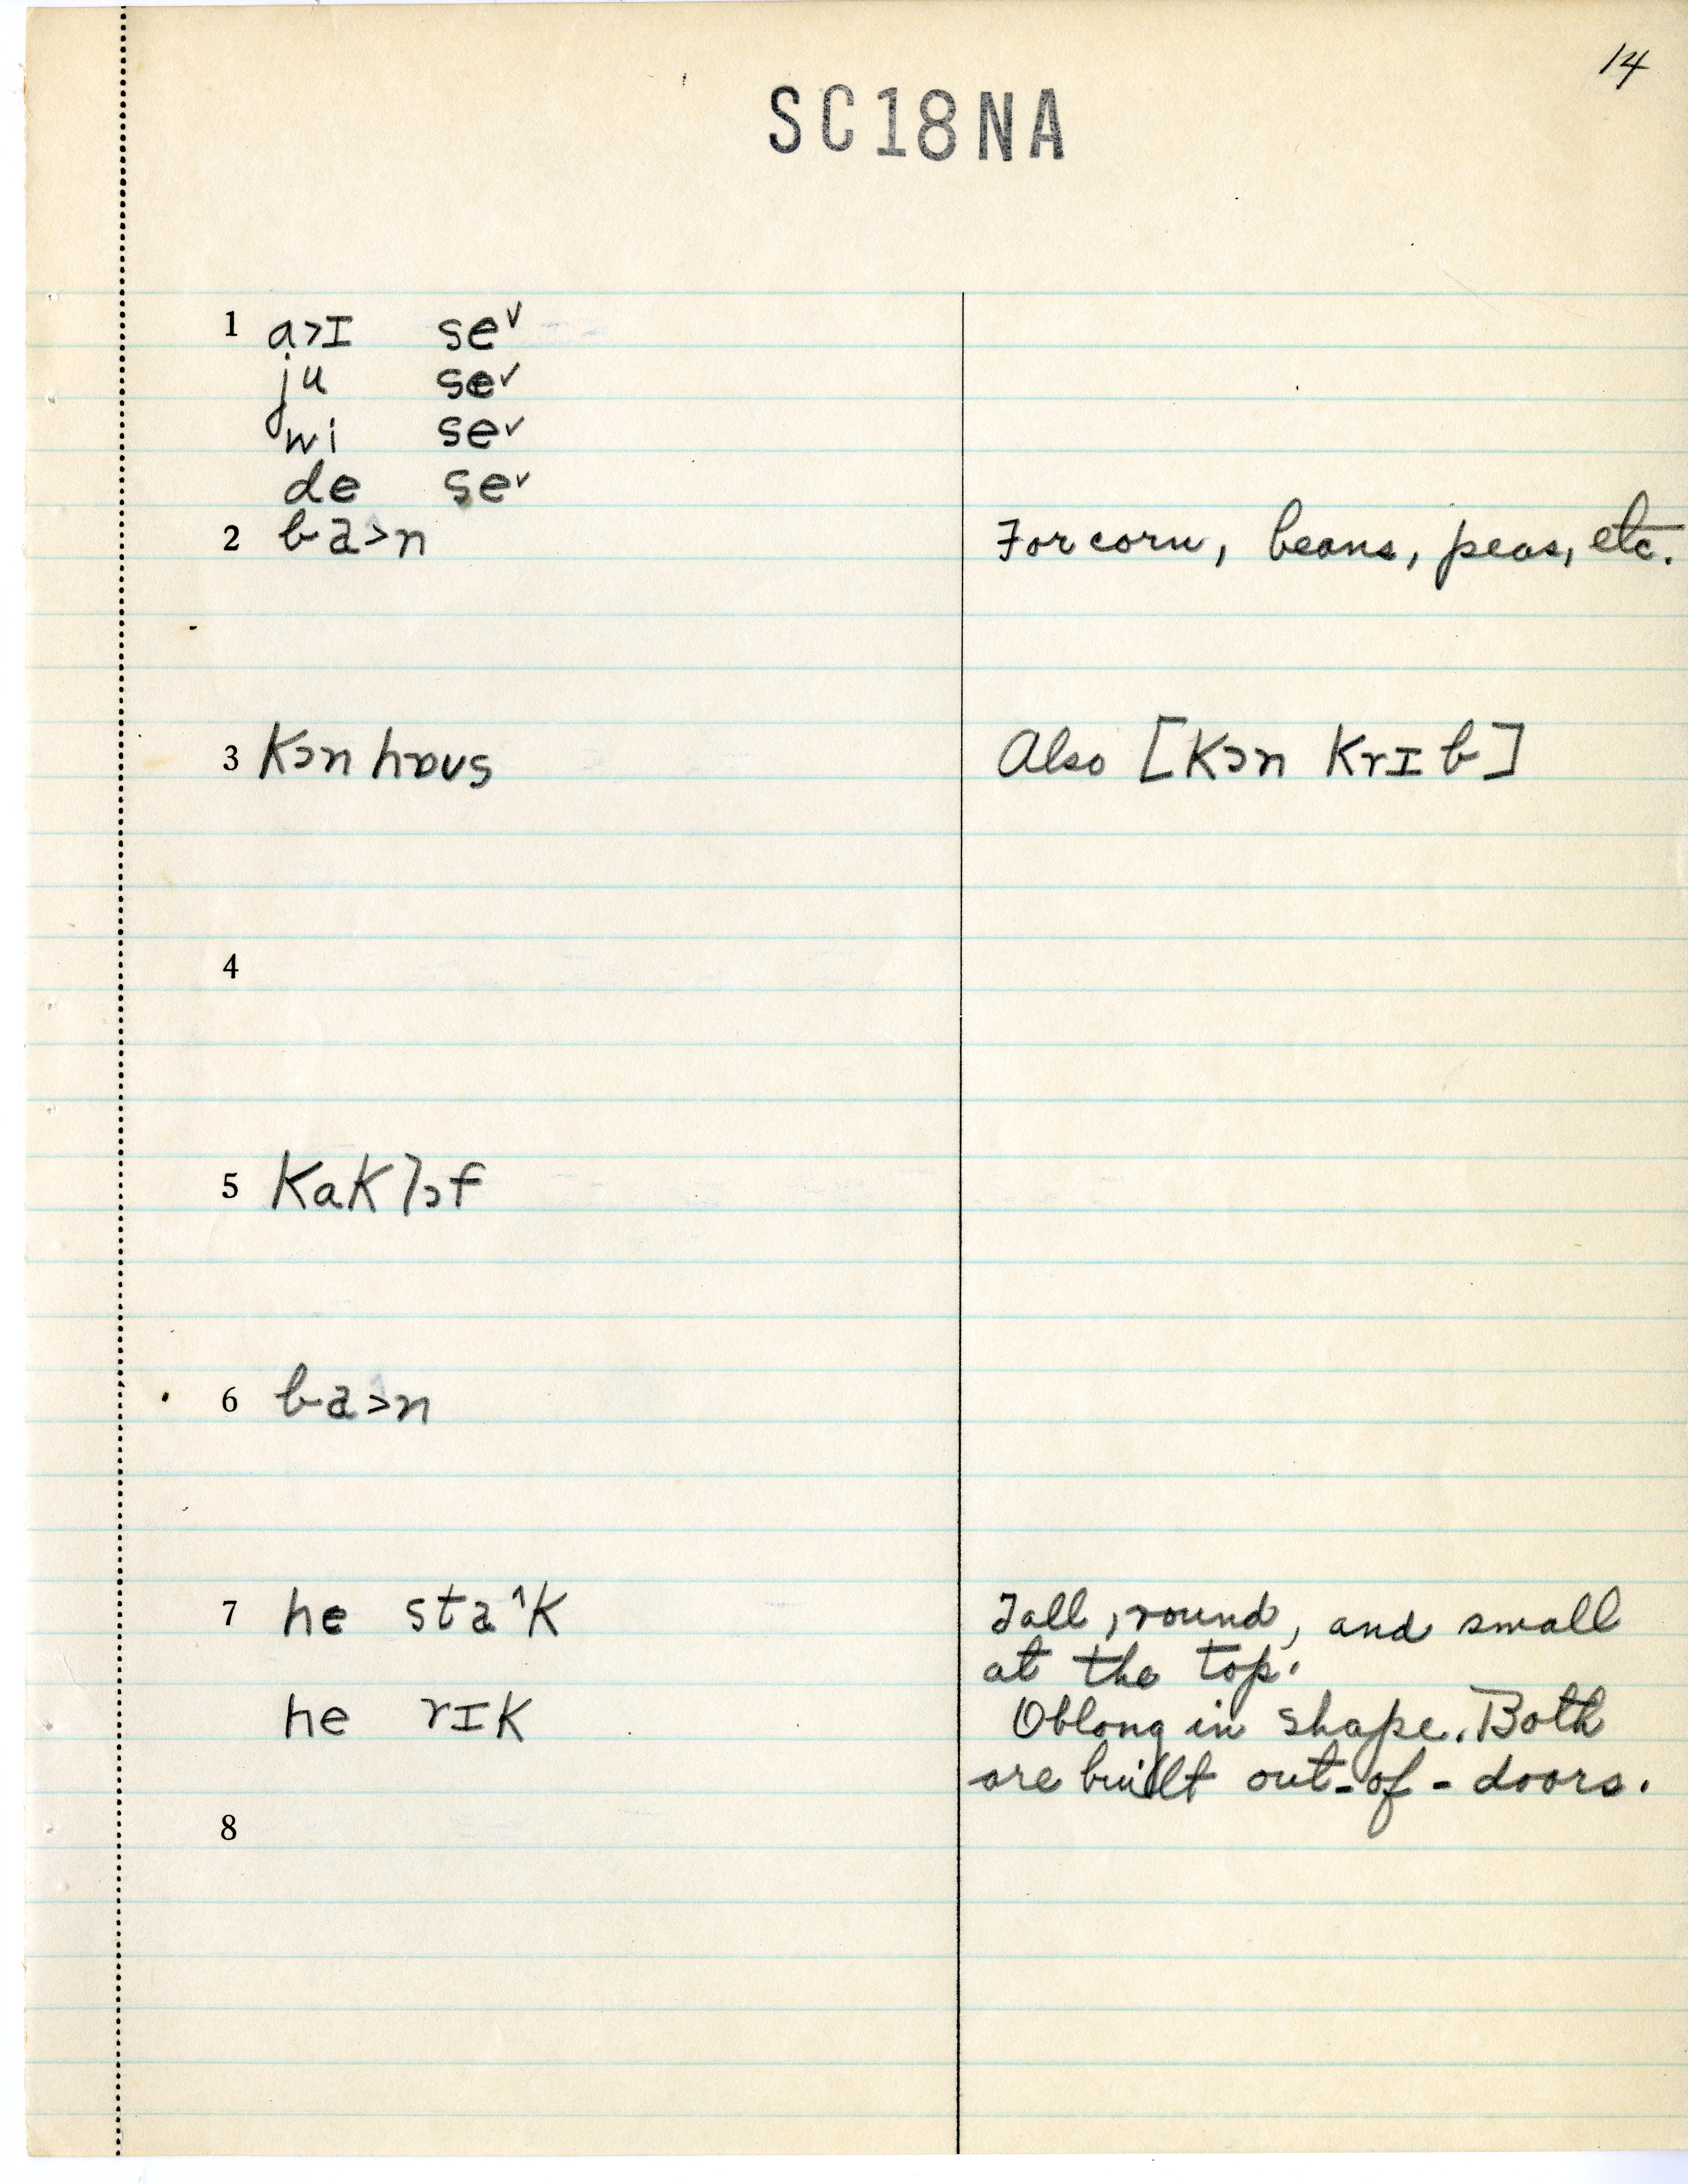 14
SC18NA
1 a>ɪ se˅
ju se˅
wi se˅
de se˅
2 ba>n For corn, beans, peas, etc.
3 kɔn hɒʊs Also [kɔn krɪb]
4
5 kaklɔf
6 ba>n
7 he sta^k Tall, round, and small
at the top.
he rɪk Oblong in shape. Both
are built out-of-doors.
8